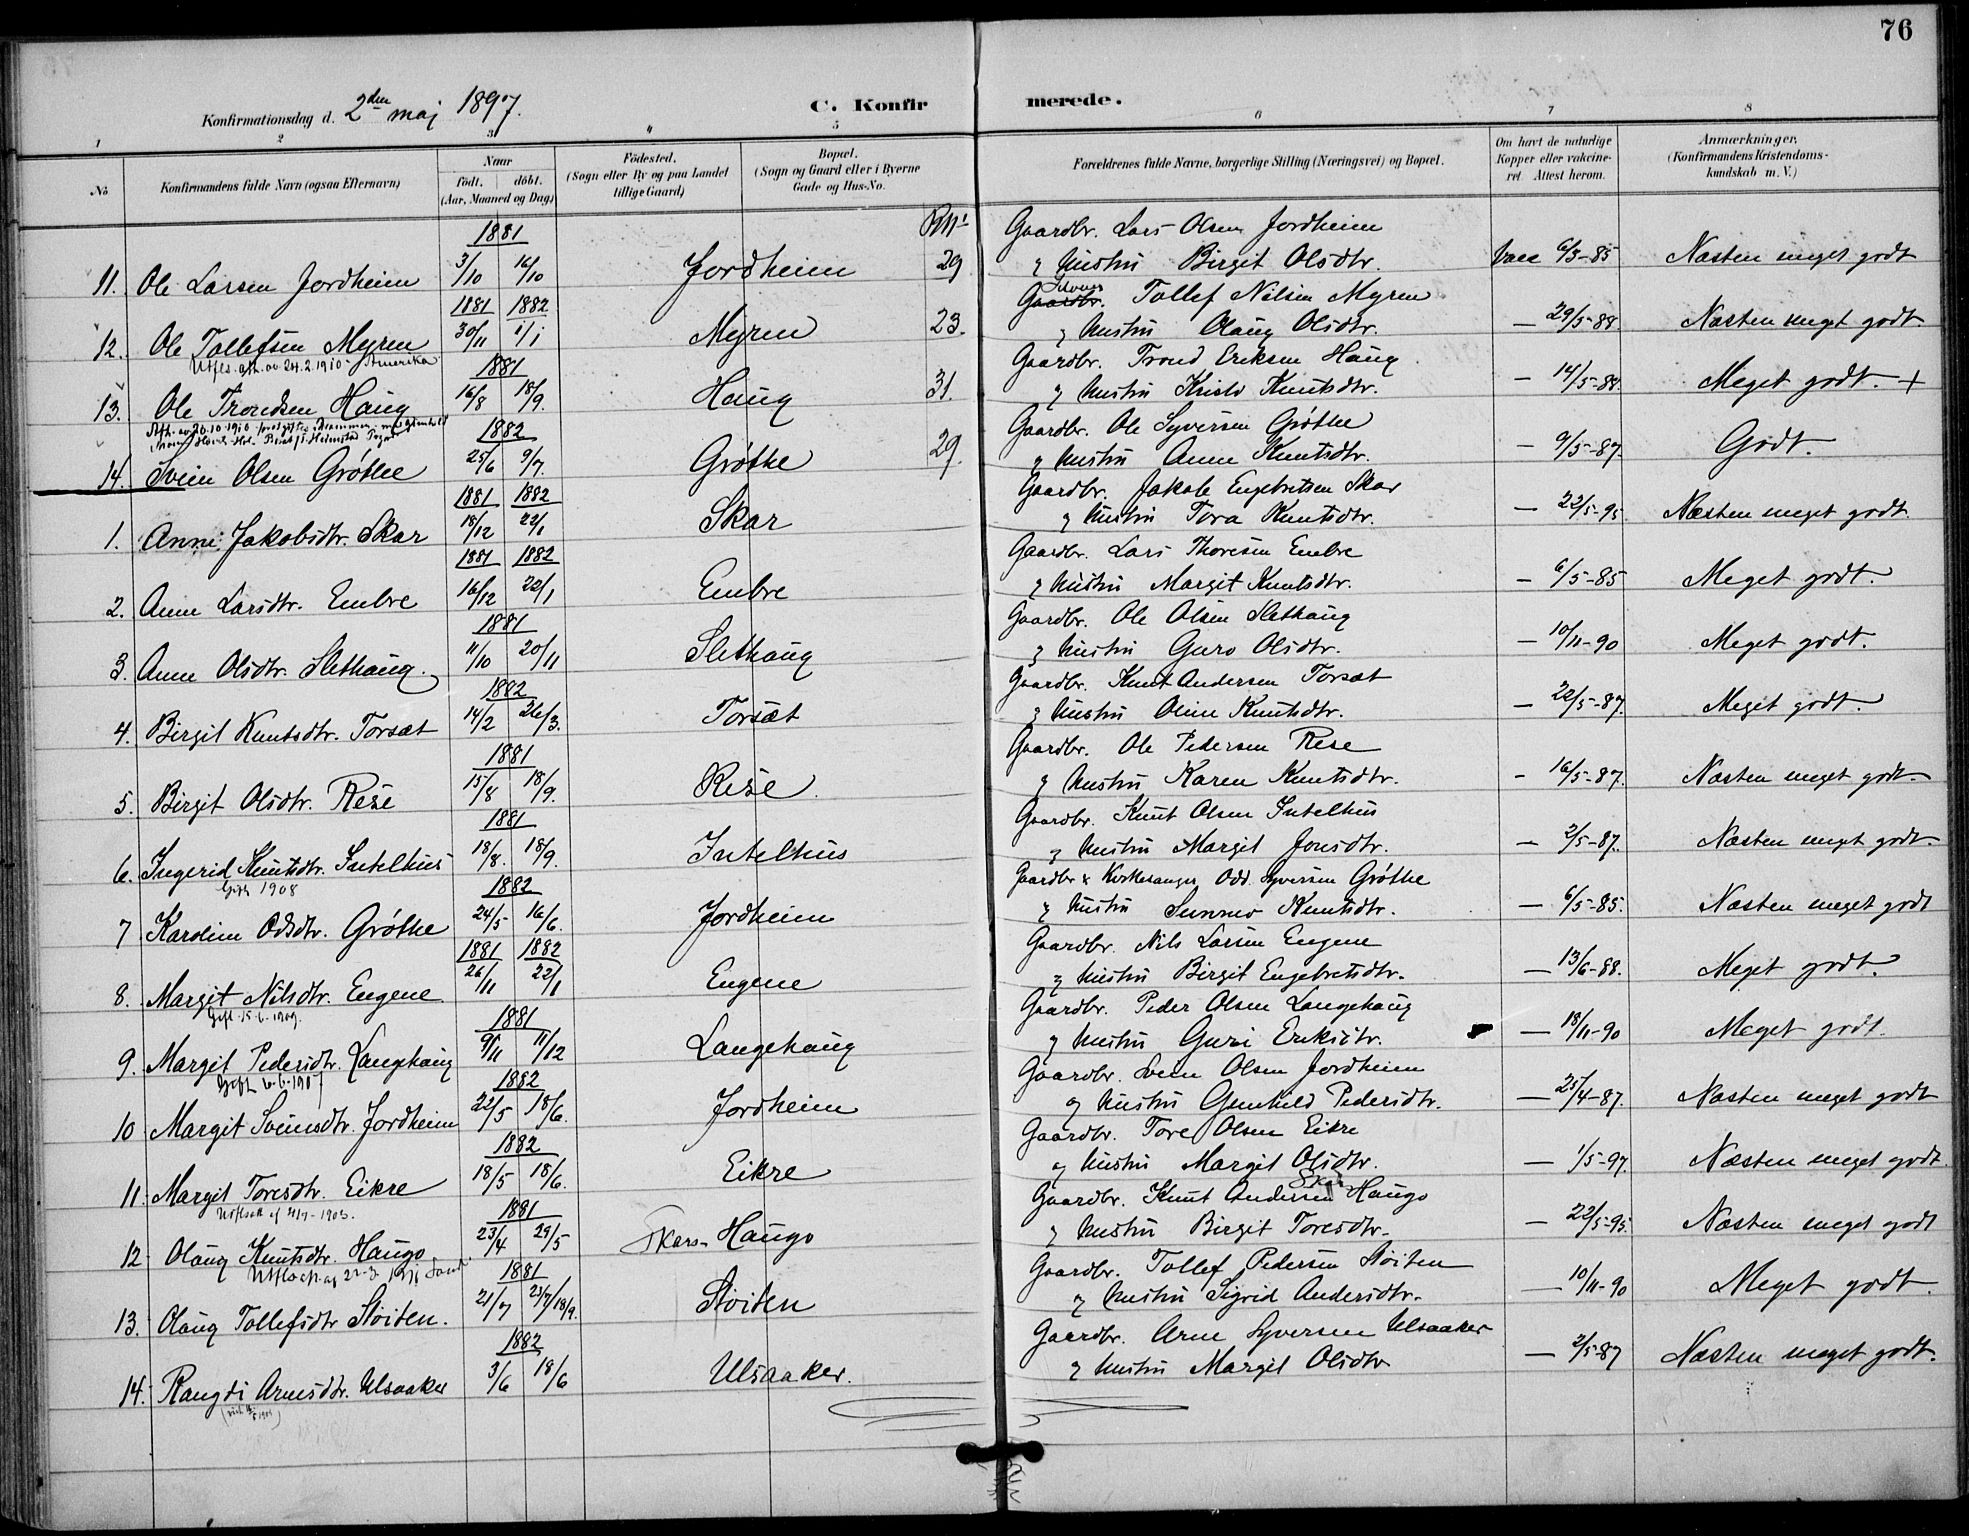 76
Konfirmationsdag d. 2den maj 1897.
C. Konfirmerede.
1 2 3 4 5 6 7 8
No
Konfirmandens fulde Navn (ogsaa Efternavn)
Naar
födt. döbt.
(Aar, Maaned og Dag)
Födested.
(Sogn eller By og paa Landet
tillige Gaard)
Bopæl.
(Sogn og Gaard eller i Byerne
Gade og Hus-No.
Forældrenes fulde Navne, borgerlige Stilling (Næringsvei) og Bopæl.
Om havt de naturlige
Kopper eller vakcine-
ret. Attest herom.
Anmærkninger.
(Konfirmandens Kristendoms-
kundskab m. V.)
1881
Gaardbr. Lars Olsen Jordheim
11. Ole Larsen Jordheim 3/10 16/10 Jordheim 29 og Hustru Birgit Olsdtr. Vacc 6/5-85 Næsten meget godt
1881 1882
Gaardbr. Tollef Nilsen Myren
12. Ole Tollefsen Myren 30/11 1/1 Myren 23. og Hustru Olaug Olsdtr. — 29/5-88 Næsten meget godt.
Utfl. att. av 24.2.1910 Amerika
1881
Gaardbr. Trond Eriksen Haug
13. Ole Trondsen Haug 16/8 18/9. Haug 31. og Hustru Kristi Knutsdtr. — 14/5-88. Meget godt. +
Ath. av 20.10.1910
1882
Gaardbr. Ole Syversen Grøthe
14. Svein Olsen Grøthe 25/6 9/7. Grøthe 29. og Hustru Anne Knutsdtr. — 9/5-87 Godt.
1881 1882
Gaardbr. Jakob Engebretsen Skar
1. Anne Jakobsdtr. Skar 18/12 22/1 Skar og Hustru Tora Knutsdtr. — 22/5-95 Næsten meget godt.
1881 1882
Gaardbr. Lars Thoresen Embre
2. Anne Larsdtr. Embre 16/12 22/1 Embre og Hustru Margit Knutsdtr. — 6/5-85 Meget godt.
1881
Gaardbr. Ole Olsen Slethaug
3. Anne Olsdtr. Slethaug. 11/10 20/11 Slethaug og Hustru Guro Olsdtr. — 10/11-90 Meget godt.
1882
Gaardbr. Knut Andersen Torsæt
4. Birgit Knutsdtr. Torsæt 14/2 26/3. Torsæt og Hustru Oline Knutsdtr. — 22/5-87. Meget godt.
1881
Gaardbr. Ole Pedersen Rese
5. Birgit Olsdtr. Rese 15/8 18/9. Rese. og Hustru Karen Knutsdtr. — 16/5-87. Næsten meget godt
1881
Gaardbr. Knut Olsen Intelhus
6. Ingerid Knutsdtr. Intelhus 18/8. 18/9. Intelhus og Hustru Margit Jonsdtr. — 2/5-87. Næsten meget godt.
Gift 1908
1882
Gaardbr & Kirkesanger Odd Syversen Grøthe
7 Karoline Odsdtr. Grøthe 24/5 16/6. Jordheim og Hustru Sunnev Knutsdtr. — 6/5-85. Næsten meget godt
1881 1882
Gaardbr. Nils Larsen Eugene
8. Margit Nilsdtr. Eugene 26/11 22/1 Eugene og Hustru Birgit Engebretsdtr. — 13/6-88. Meget godt.
Gift 15.6.1909.
1881
Gaardbr. Peder Olsen Langehaug
9. Margit Pedersdtr. Langehaug 9/11 11/12 Langehaug og Hustru Guri Eriksdtr. — 18/11-90 Meget godt.
Gift 6.6.1907
1882
Gaardbr. Svein Olsen Jordheim
10 Margit Sveinsdtr. Jordheim 22/5 18/6. Jordheim og Hustru Gunhild Pedersdtr. — 25/4-87. Næsten meget godt
1882
Gaardbr. Tore Olsen Eikre
11. Margit Toresdtr. Eikre 18/5 18/6. Eikre og Hustru Margit Olsdtr. — 1/5-97. Næsten meget godt.
1881
Gaardbr. Knut Andersen Skars Haugo
12 Olaug Knutsdtr. Haugo 23/4 29/5 Skars-Haugo og Hustru Birgit Toresdtr. — 22/5-95. Næsten meget godt
1881
Gaardbr. Tollef Pedersen Støiten
13. Olaug Tollefsdtr Støiten. 21/7 23/7/18/9. Støiten og Hustru Sigrid Andersdtr. — 10/11-90 Meget godt.
1882
Gaardbr. Arne Syversen Ulsaaker
14. Rangdi Arnesdtr. Ulsaaker 3/6 18/6 Ulsaaker. og Hustru Margit Olsdtr — 2/5-87 Næsten meget godt.